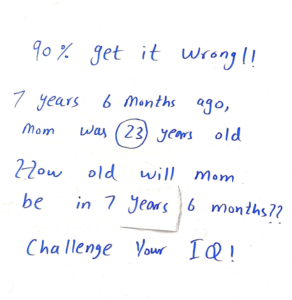 90% get it wrong!!
7 years 6 Months ago,
Mom was 23 years old
How old will Mom
be in 7 years 6 months??
Challenge Your IQ!